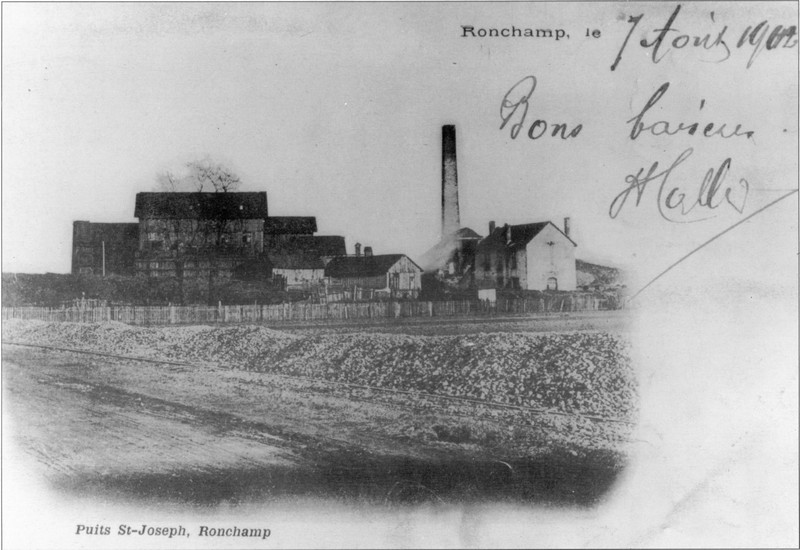 Ronchamp, le 7 Août 1902
Bons baisers.
Puits St-Joseph, Ronchamp